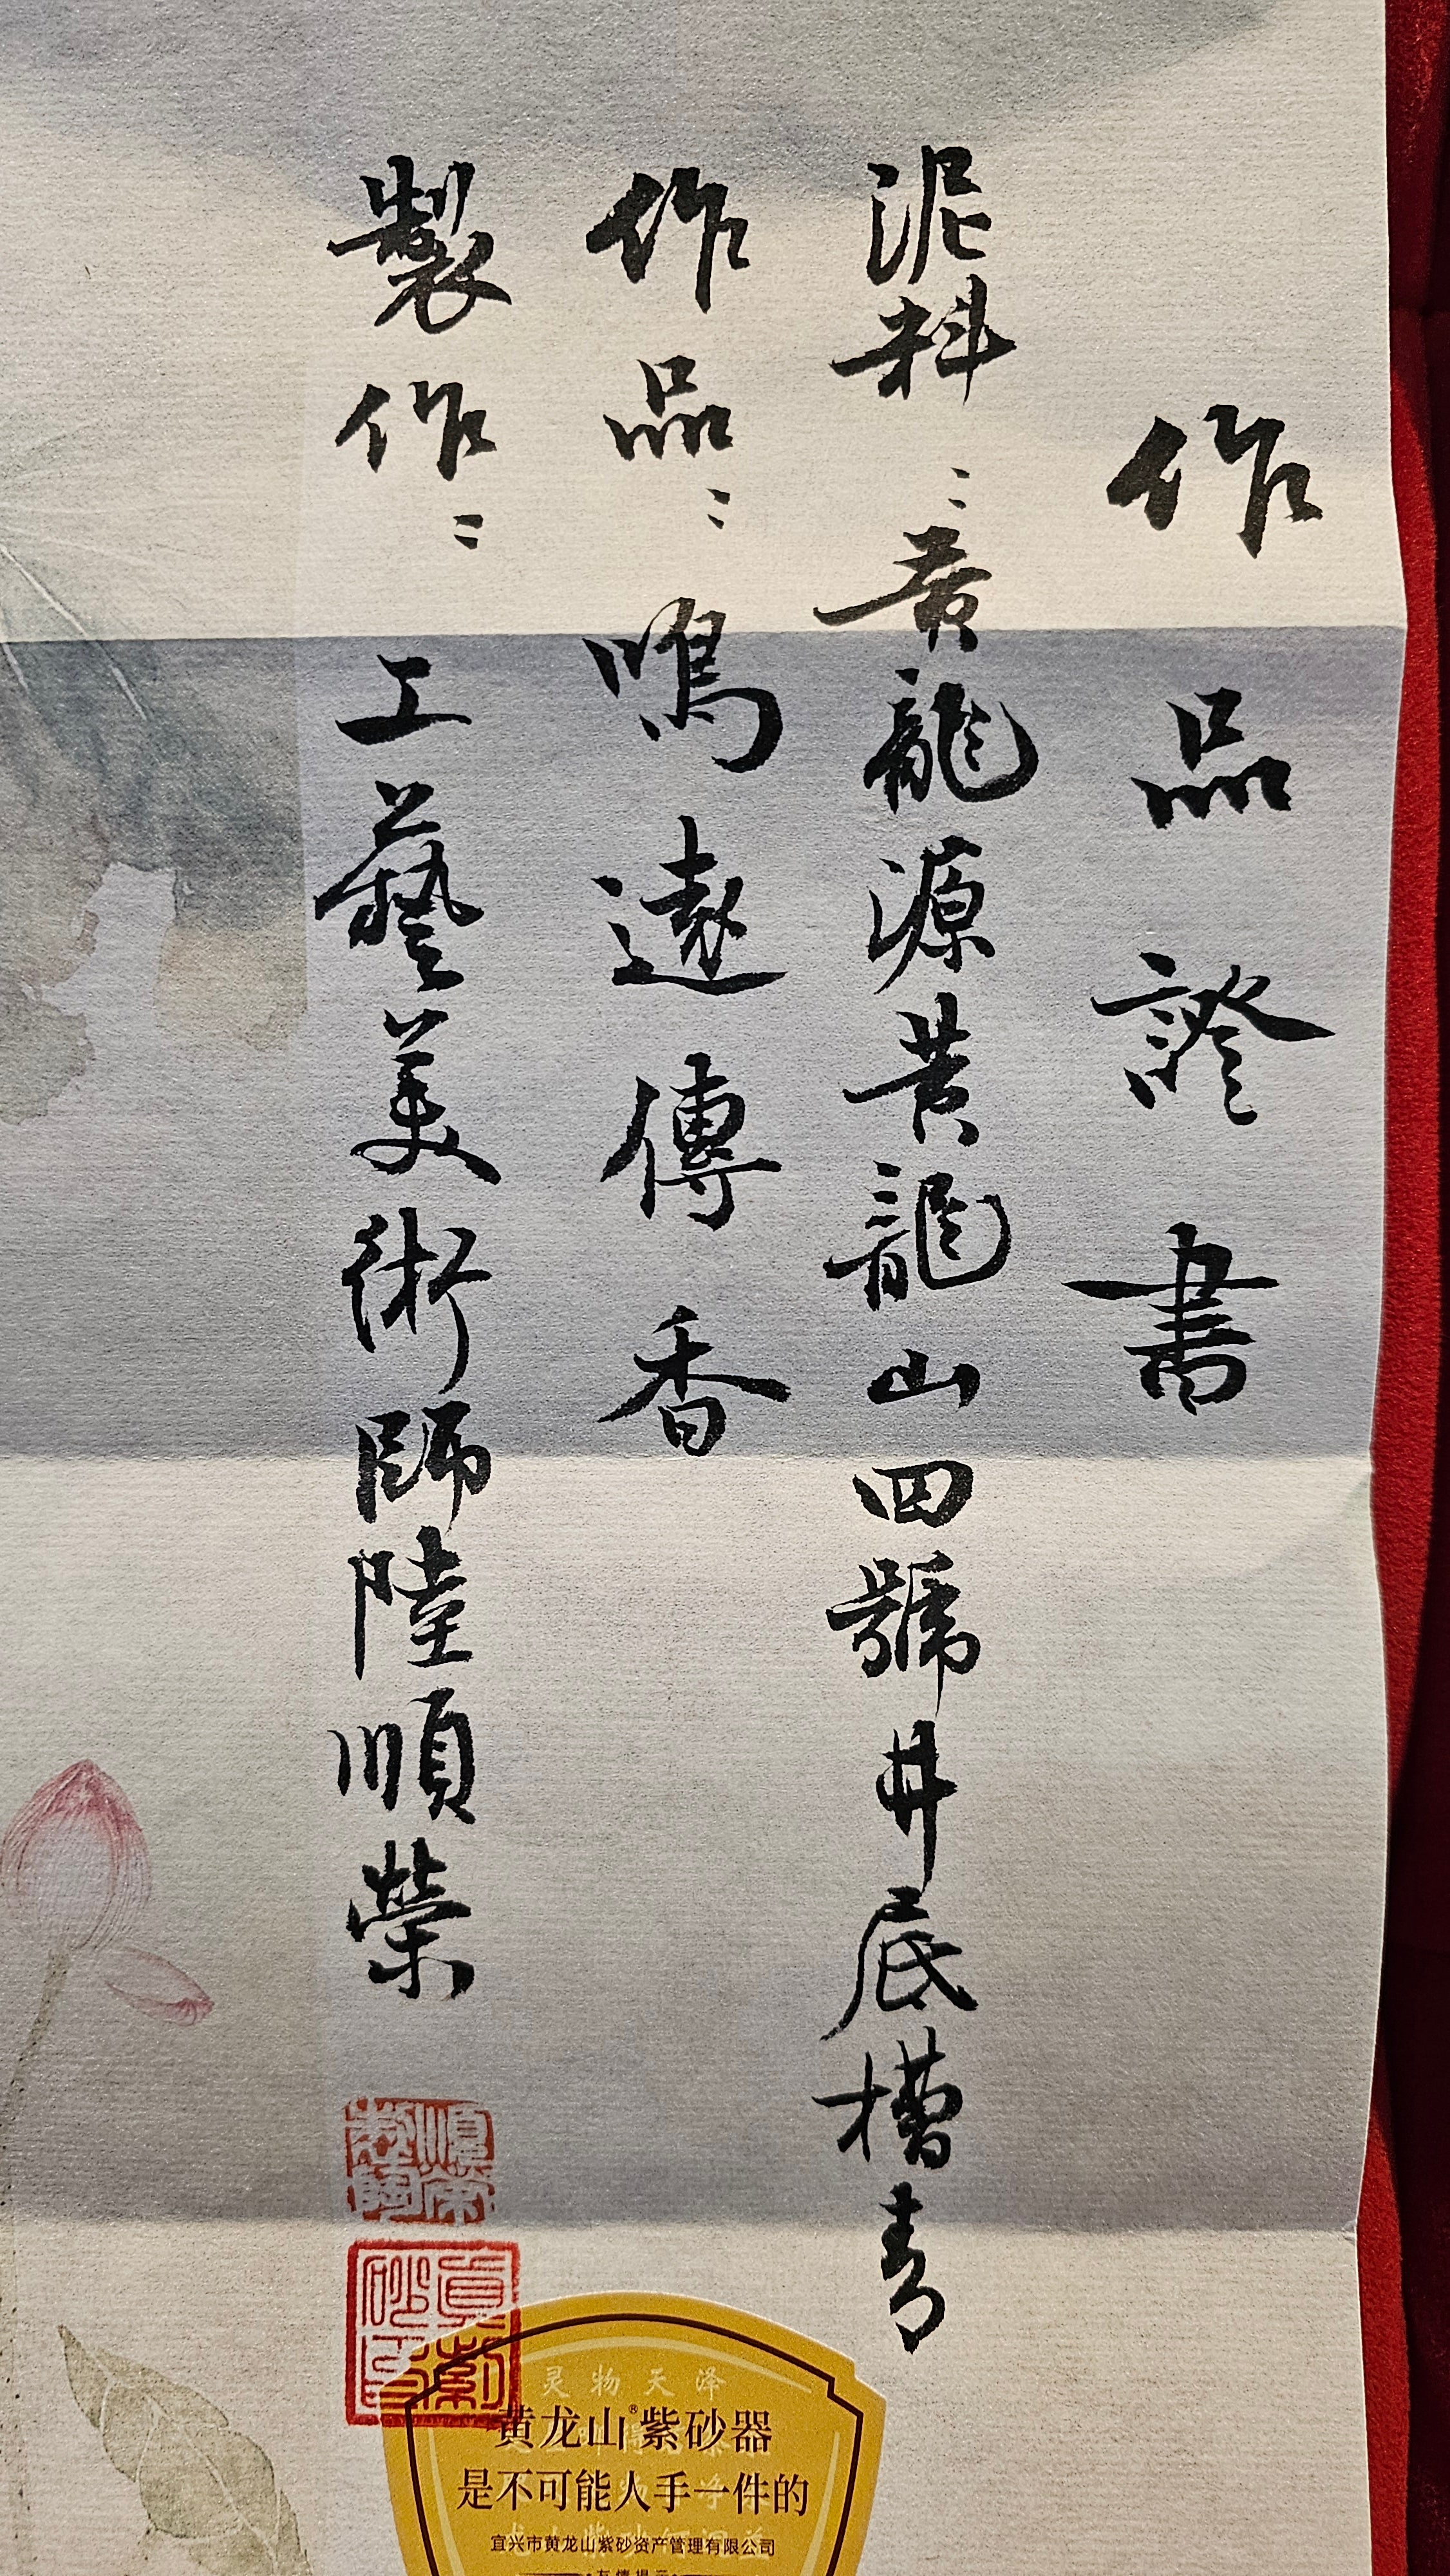 作品證書
泥料：黄龍源黄龍山四號井底槽青
作品：鳴遠傳香
製作：工藝美術師陸順榮
灵物天泽
黄龙山®紫砂器
是不可能人手一件的
宜兴市黄龙山紫砂资产管理有限公司